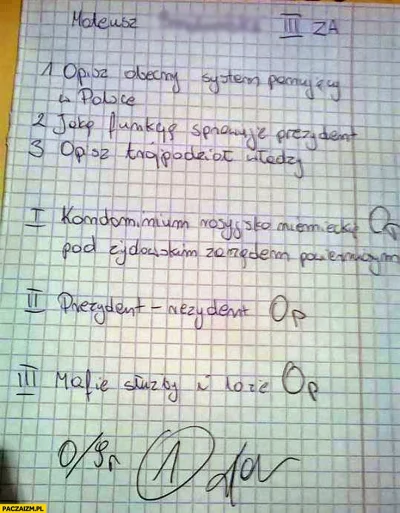 Mateusz III ZA
1 Opisz obecny system panujący
w Polsce
2 Jaką funkcję sprawuje prezydent
3 Opisz trójpodział władzy
I Kondominium rosyjsko niemieckie 0p
pod żydowskim zarządem powierniczym
II Prezydent – rezydent 0p
III Mafie służby i loże 0p
0/9p 1
PACZAIZM.PL